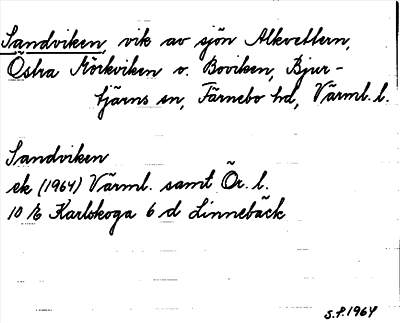 Sandviken, vik av sjön Alkvettern,
Östra Mörkviken o. Boviken, Bjur-
tjärns sn, Färnebo hd, Värml. l.
Sandviken
ek (1964) Värml. samt Ör. l.
10 E Karlskoga 6 d Linnebäck
S.F. 1964